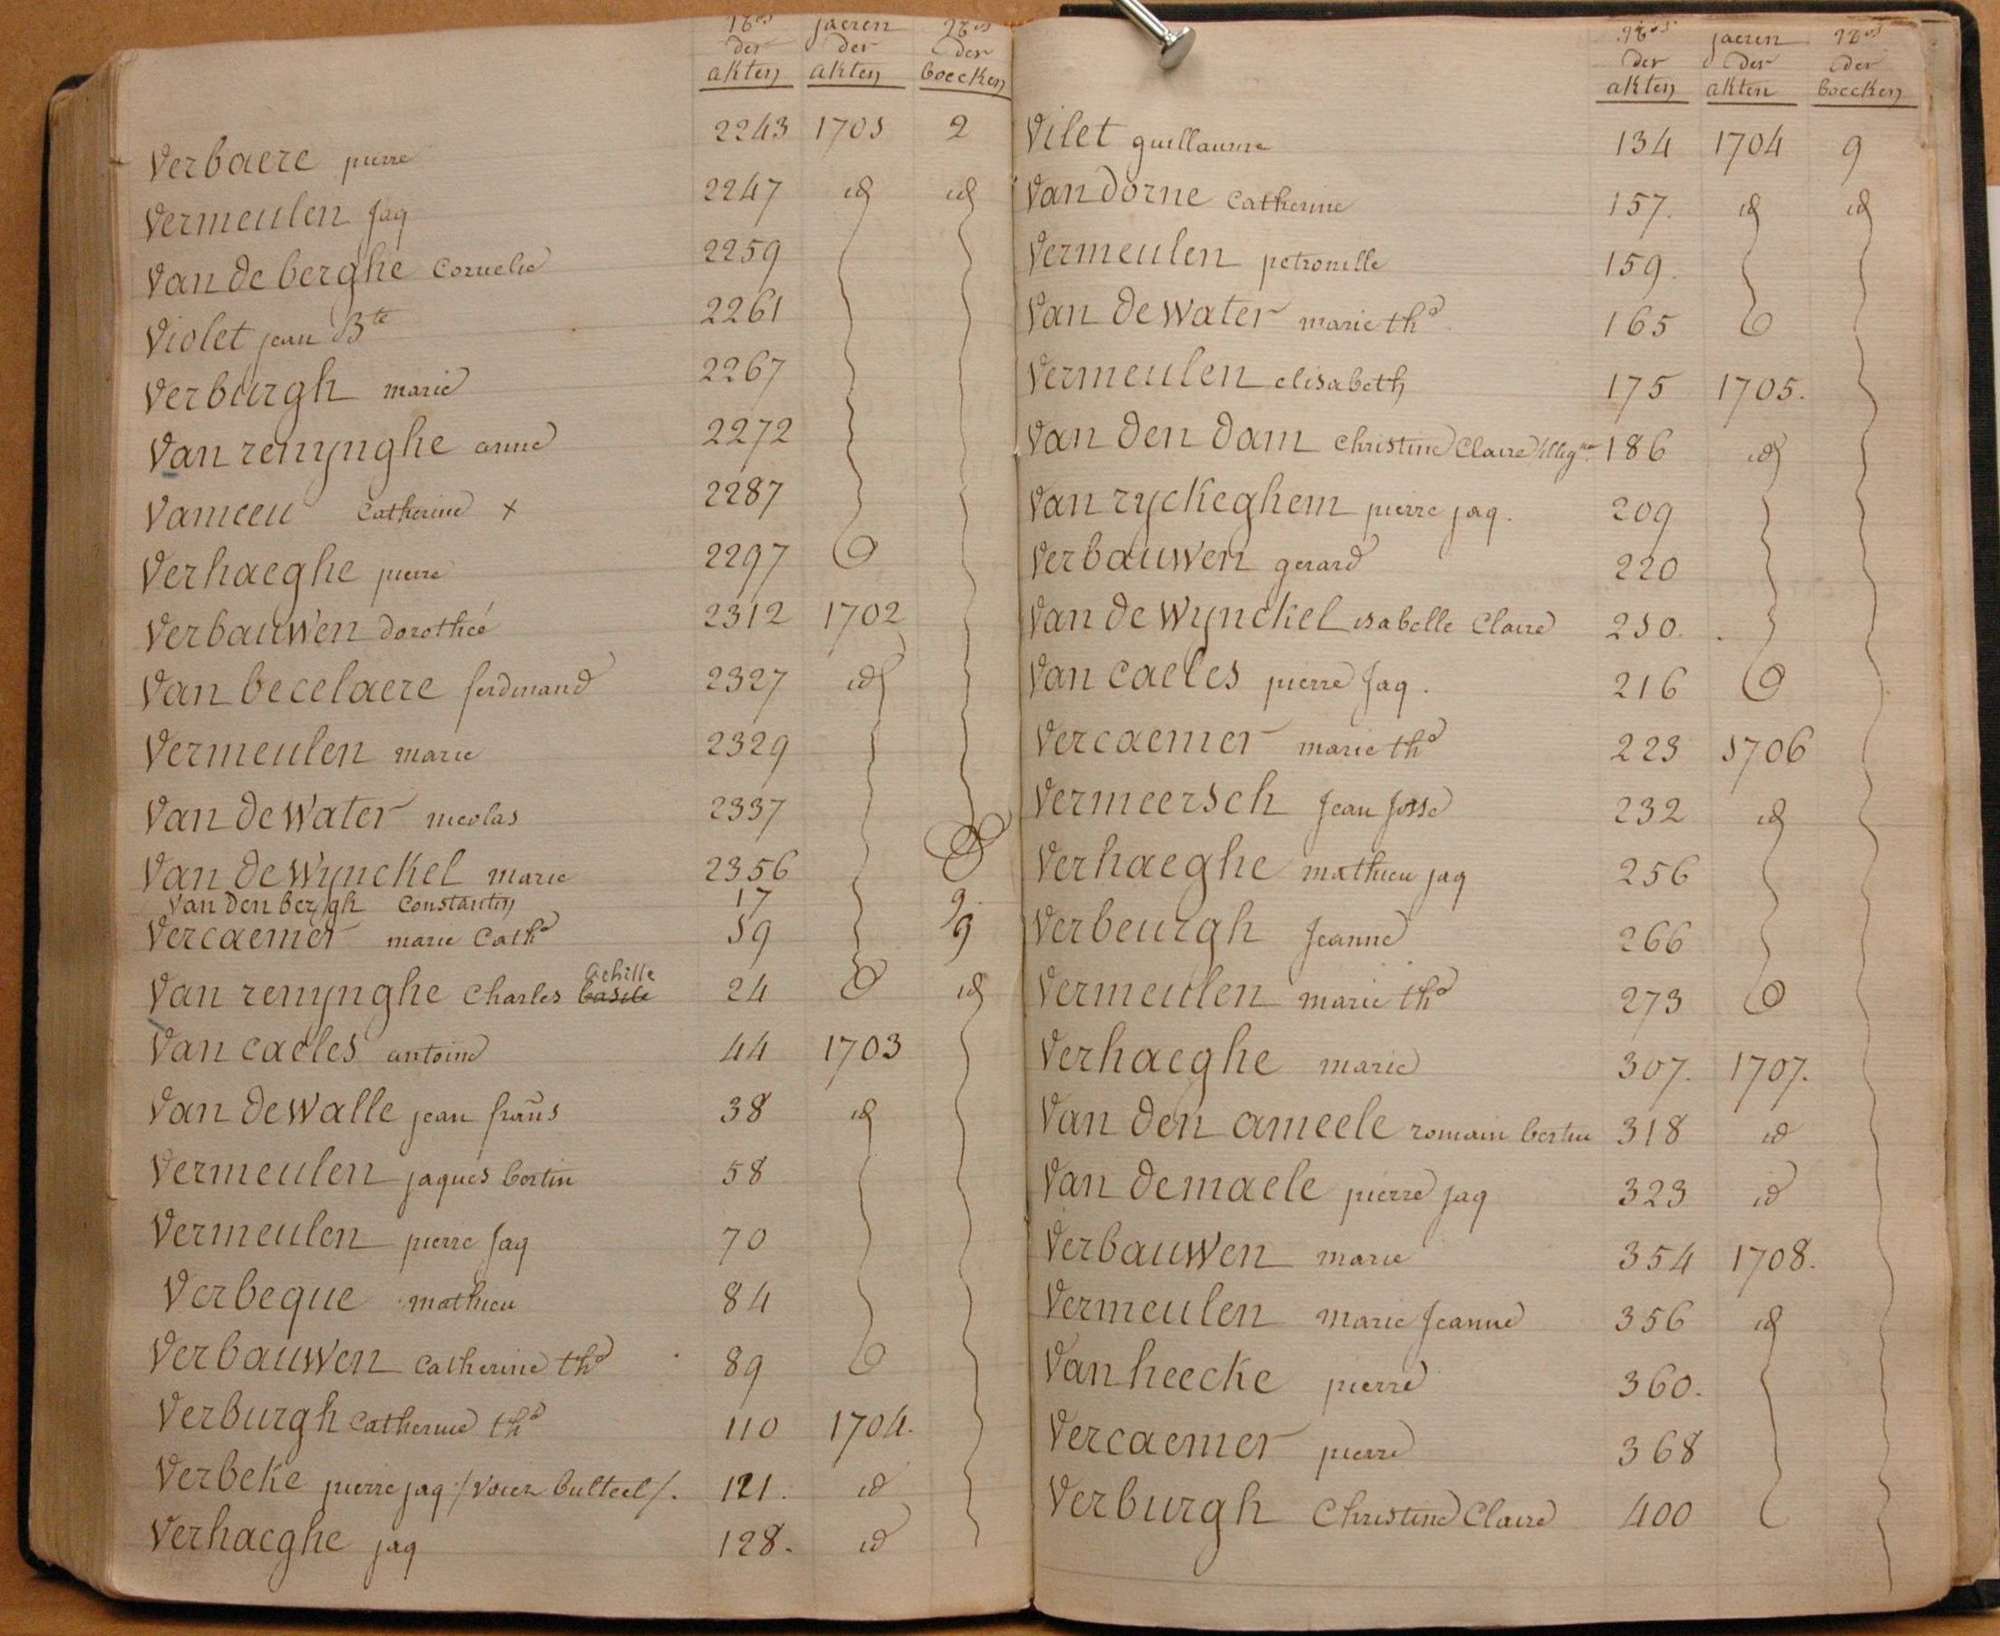 Nos jaeren Nos
der der der
akten akten boecken
Verbaere pierre 2243 1701 2
Vermeulen jaq 2247 id id
Van de berghe Cornelie 2259
Violet jean Bte 2261
Verburgh marie 2267
Van renynghe anne 2272
Vameeu Catherine x 2287
Verhaeghe pierre 2297
Verbauwen dorothée 2312 1702
Van becelaere ferdinand 2327 id
Vermeulen marie 2329
Van de water nicolas 2337
Van de Wynckel marie 2356
Van den bergh Constantin 17 9
Vercaemer marie Cathe 19 9
achille
Van renynghe Charles basile 24 id
Van caeles antoine 44 1703
Van de walle jean frans 38 id
Vermeulen jaques bertin 58
Vermeulen pierre jaq 70
Verbeque mathieu 84
Verbauwen Catherine the 89
Verburgh Catherine the 110 1704.
Verbeke pierre jaq /voiez bulteel/. 121. id
Verhaeghe jaq 128. id
Nos jaeren Nos
der der der
akten akten boecken
Vilet guillaume 134 1704 9
Van dorne Catherine 157. id id
Vermeulen petronille 159.
Van de water marie the 165
Vermeulen elisabeth 175 1705.
Van den dam Christine Claire 186 id
Van ryckeghem pierre jaq. 209
Verbauwen gerard 220
Van de Wynckel isabelle Claire 210.
Van caeles pierre jaq. 216
Vercaemer marie the 223 1706
Vermeersch jean josse 232 id
Verhaeghe mathieu jaq 256
Verbeurgh jeanne 266
Vermeulen marie the 273
Verhaeghe marie 307. 1707.
Van den ameele romain bertin 318 id
Van demaele pierre jaq 323 id
Verbauwen marie 354 1708.
Vermeulen marie jeanne 356 id
Van heecke pierre 360.
Vercaemer pierre 368
Verburgh Christine Claire 400